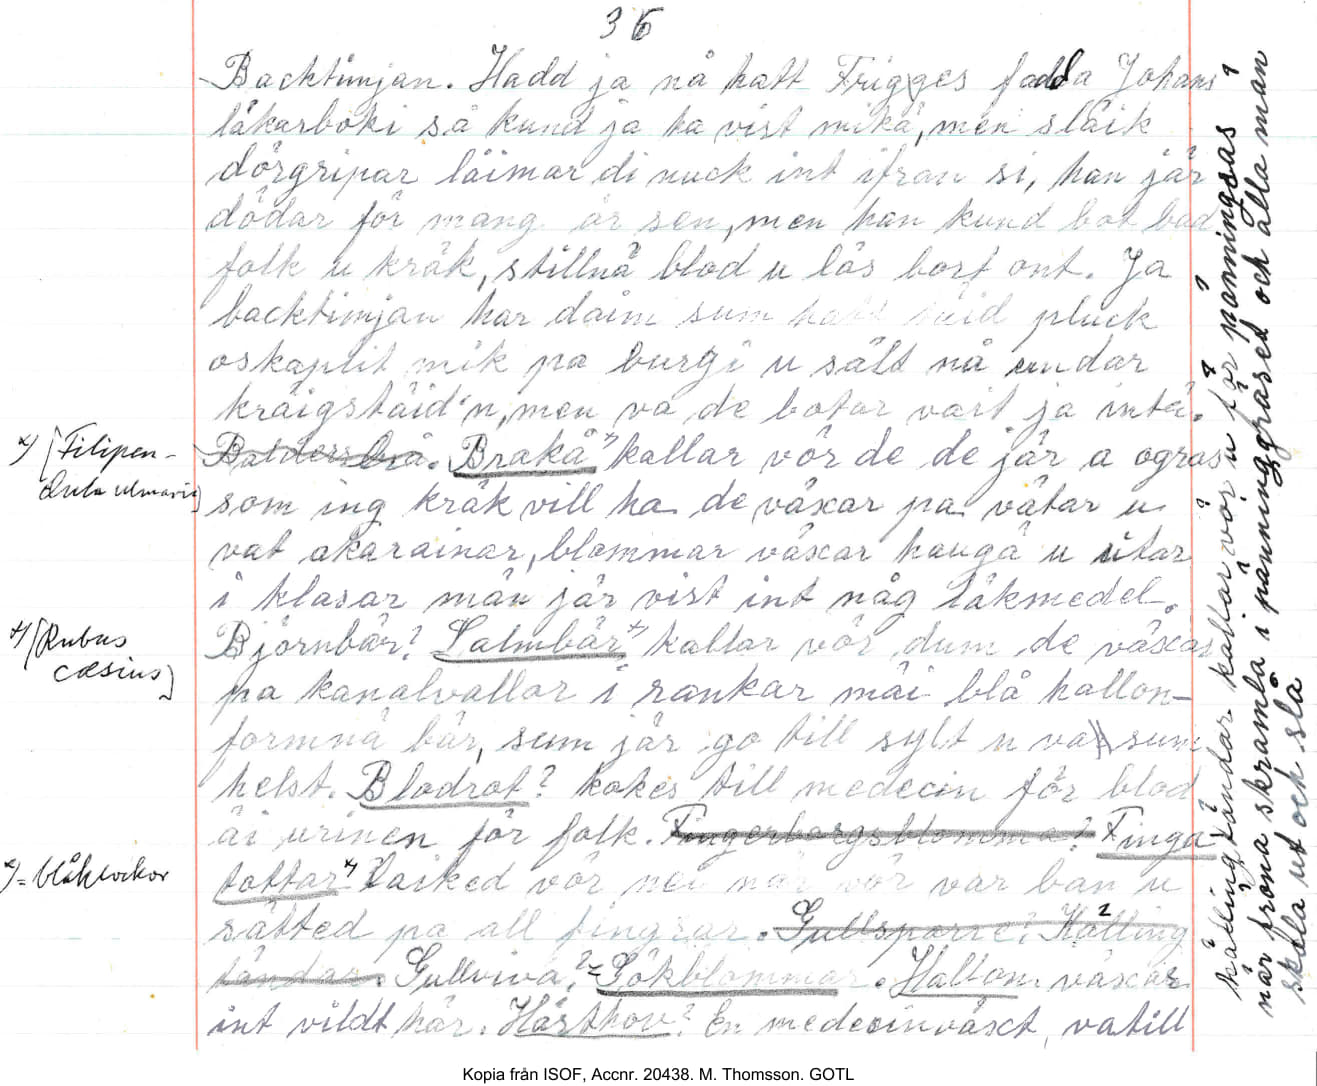 36
Backtimjan. Hadd ja nå hatt Frigges fadda Johans
läkarboki så kund ja ha vist mikä, men släik
dörgripar läimar di nuck int ifran si, han jär
dödar för mang ar sen, men han kund bot bad
folk u kräk, stillnä blod u läs bort ont. Ja
backtimjan har däim sum hatt pluck
oskaplit mik pa burgi u sält nå undar
kräigstäid'n, men va de botar vait ja intä.
x) [Filipen-
dula ulmaria]
Baldersbrå. Brakä x) kallar vör de de jär a ogräs
som ing kräk vill ha de växar pa vätar u
vat akarainar, blommar växar haugä u sitar
i klasar män jär vist int någ läkmedel.
x) [Rubus
cæsius]
Björnbär? Salmbär x) kallar vör dum de växar
pa kanalvallar i rankar mäi blå hallon-
formnä bär, sum jär go till sylt u va sum
helst. Blodrot? kokes till medecin för blod
äi urinen för folk. Fingerborgsblomma? Finga
x) = blåklockor
tottar x) laiked vör när vör var ban u
sätted pa all fingrar. Gullsporre? Källing
tändar. Gullviva? = Gökblommar. Hallon växar
int vildt här. Hästhov? En medecinväxt, vatill
källingtändar kallar vör u för pänningsas
när fröna skramla i pänninggräsed och alla man
skilla ut och slå
Kopia från ISOF, Accnr. 20438. M. Thomsson. GOTL